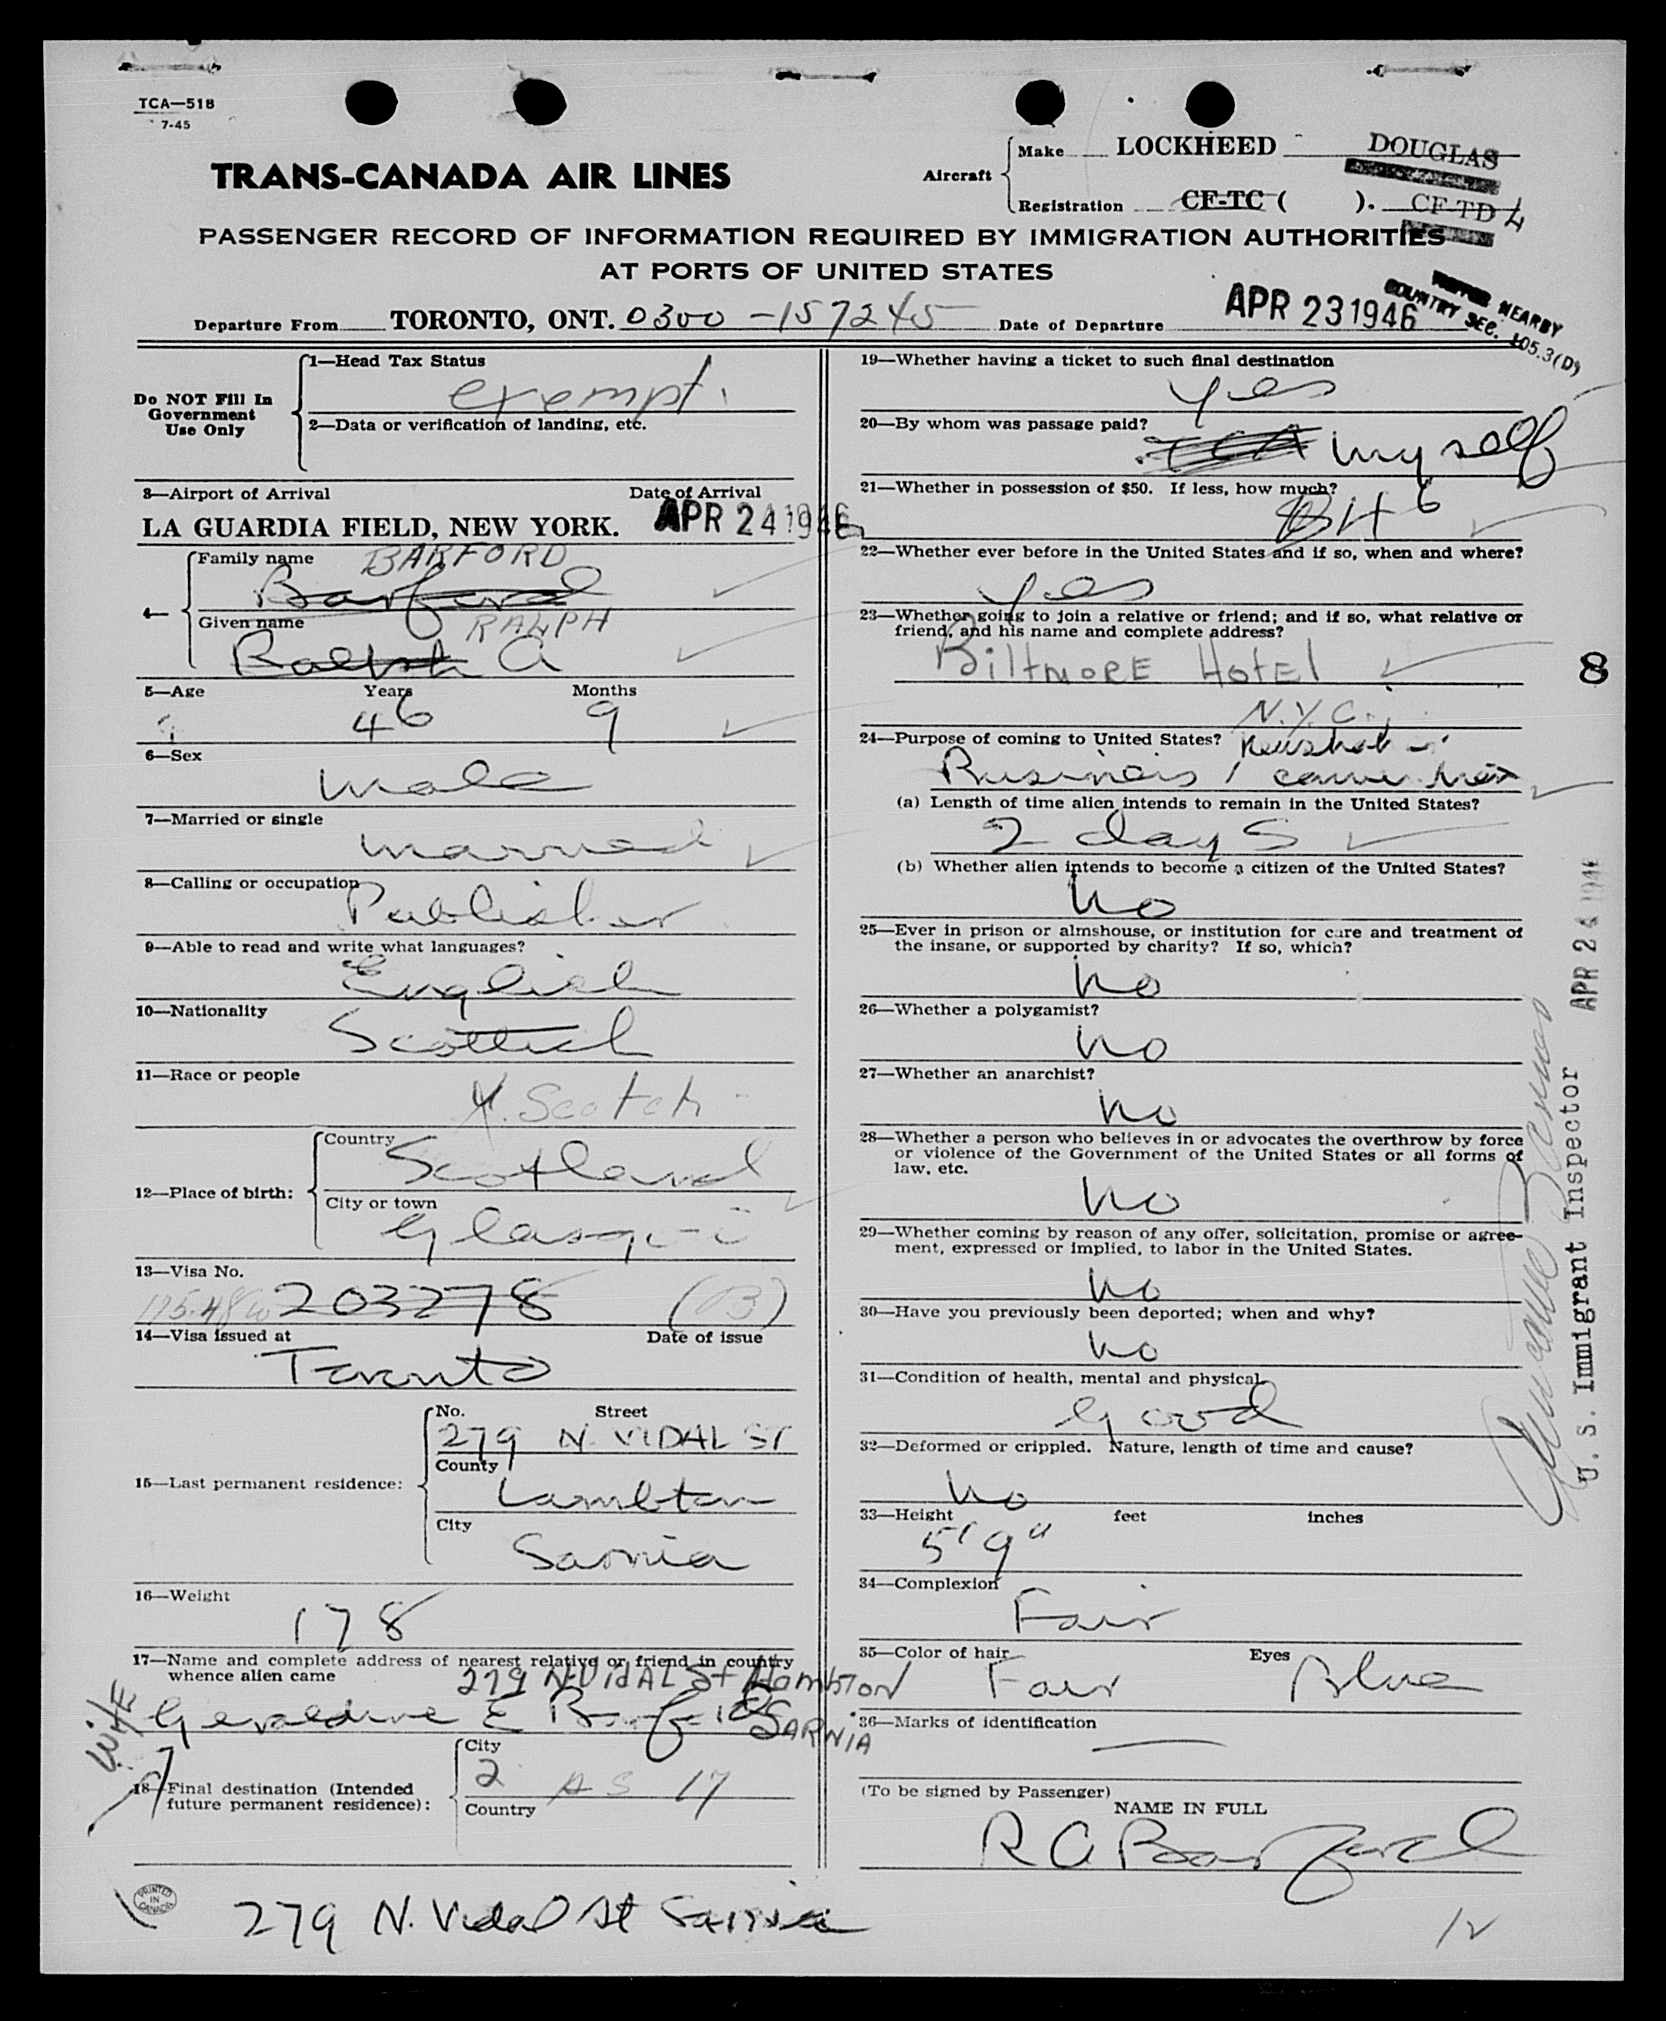 TCA—518
7-45
TRANS-CANADA AIR LINES
Aircraft
Make LOCKHEED DOUGLAS
Registration CF-TC ( ). CF-TD 4
PASSENGER RECORD OF INFORMATION REQUIRED BY IMMIGRATION AUTHORITIES
AT PORTS OF UNITED STATES
Departure From TORONTO, ONT. 0300 -157245 Date of Departure APR 23 1946
NEARBY
COUNTRY SEC. 105.3(D)
Do NOT Fill In
Government
Use Only
1—Head Tax Status
exempt.
2—Data or verification of landing, etc.
3—Airport of Arrival Date of Arrival
LA GUARDIA FIELD, NEW YORK. APR 24 1946
4—
Family name BARFORD
Barford
Given name RALPH
Ralph A
5—Age Years Months
46 9
6—Sex
male
7—Married or single
married
8—Calling or occupation
Publisher
9—Able to read and write what languages?
English
10—Nationality
Scottish
11—Race or people
Scotch
12—Place of birth:
Country
Scotland
City or town
Glasgow
13—Visa No.
203278 (B)
14—Visa issued at Date of issue
Toronto
15—Last permanent residence:
No. Street
279 N. VIDAL ST
County
Lambton
City
Sarnia
16—Weight
178
17—Name and complete address of nearest relative or friend in country
whence alien came
279 N VIdAL St Lambton
Wife
Geraldine E Barford SARNIA
18—Final destination (Intended
future permanent residence):
City
2 AS 17
Country
PRINTED
IN
CANADA
279 N. Vidal St Sarnia
19—Whether having a ticket to such final destination
yes
20—By whom was passage paid?
TCA myself
21—Whether in possession of $50. If less, how much?
22—Whether ever before in the United States and if so, when and where?
yes
23—Whether going to join a relative or friend; and if so, what relative or
friend, and his name and complete address?
BiltmoRE HotEl
N.Y.C.
24—Purpose of coming to United States?
Business /
(a) Length of time alien intends to remain in the United States?
2 days
(b) Whether alien intends to become a citizen of the United States?
no
25—Ever in prison or almshouse, or institution for care and treatment of
the insane, or supported by charity? If so, which?
no
26—Whether a polygamist?
no
27—Whether an anarchist?
no
28—Whether a person who believes in or advocates the overthrow by force
or violence of the Government of the United States or all forms of
law, etc.
no
29—Whether coming by reason of any offer, solicitation, promise or agree-
ment, expressed or implied, to labor in the United States.
no
30—Have you previously been deported; when and why?
no
31—Condition of health, mental and physical
good
32—Deformed or crippled. Nature, length of time and cause?
no
33—Height feet inches
5' 9"
34—Complexion
Fair
35—Color of hair Eyes
Fair Blue
36—Marks of identification
—
(To be signed by Passenger)
NAME IN FULL
R A Barford
12
8
APR 24 1946
U. S. Immigrant Inspector